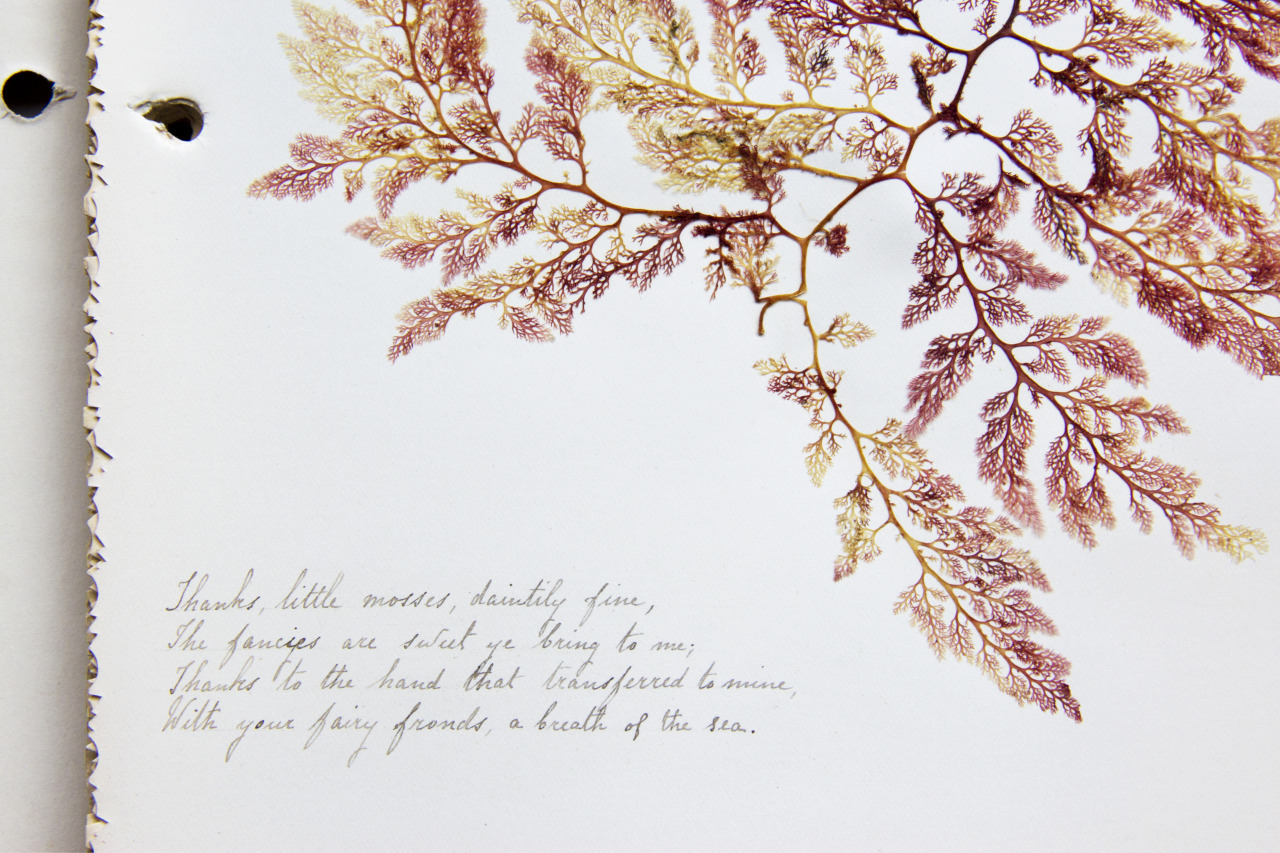 Thanks, little mosses, daintily fine,
The fancies are sweet ye bring to me;
Thanks to the hand that transferred to mine,
With your fairy fronds, a breath of the sea.